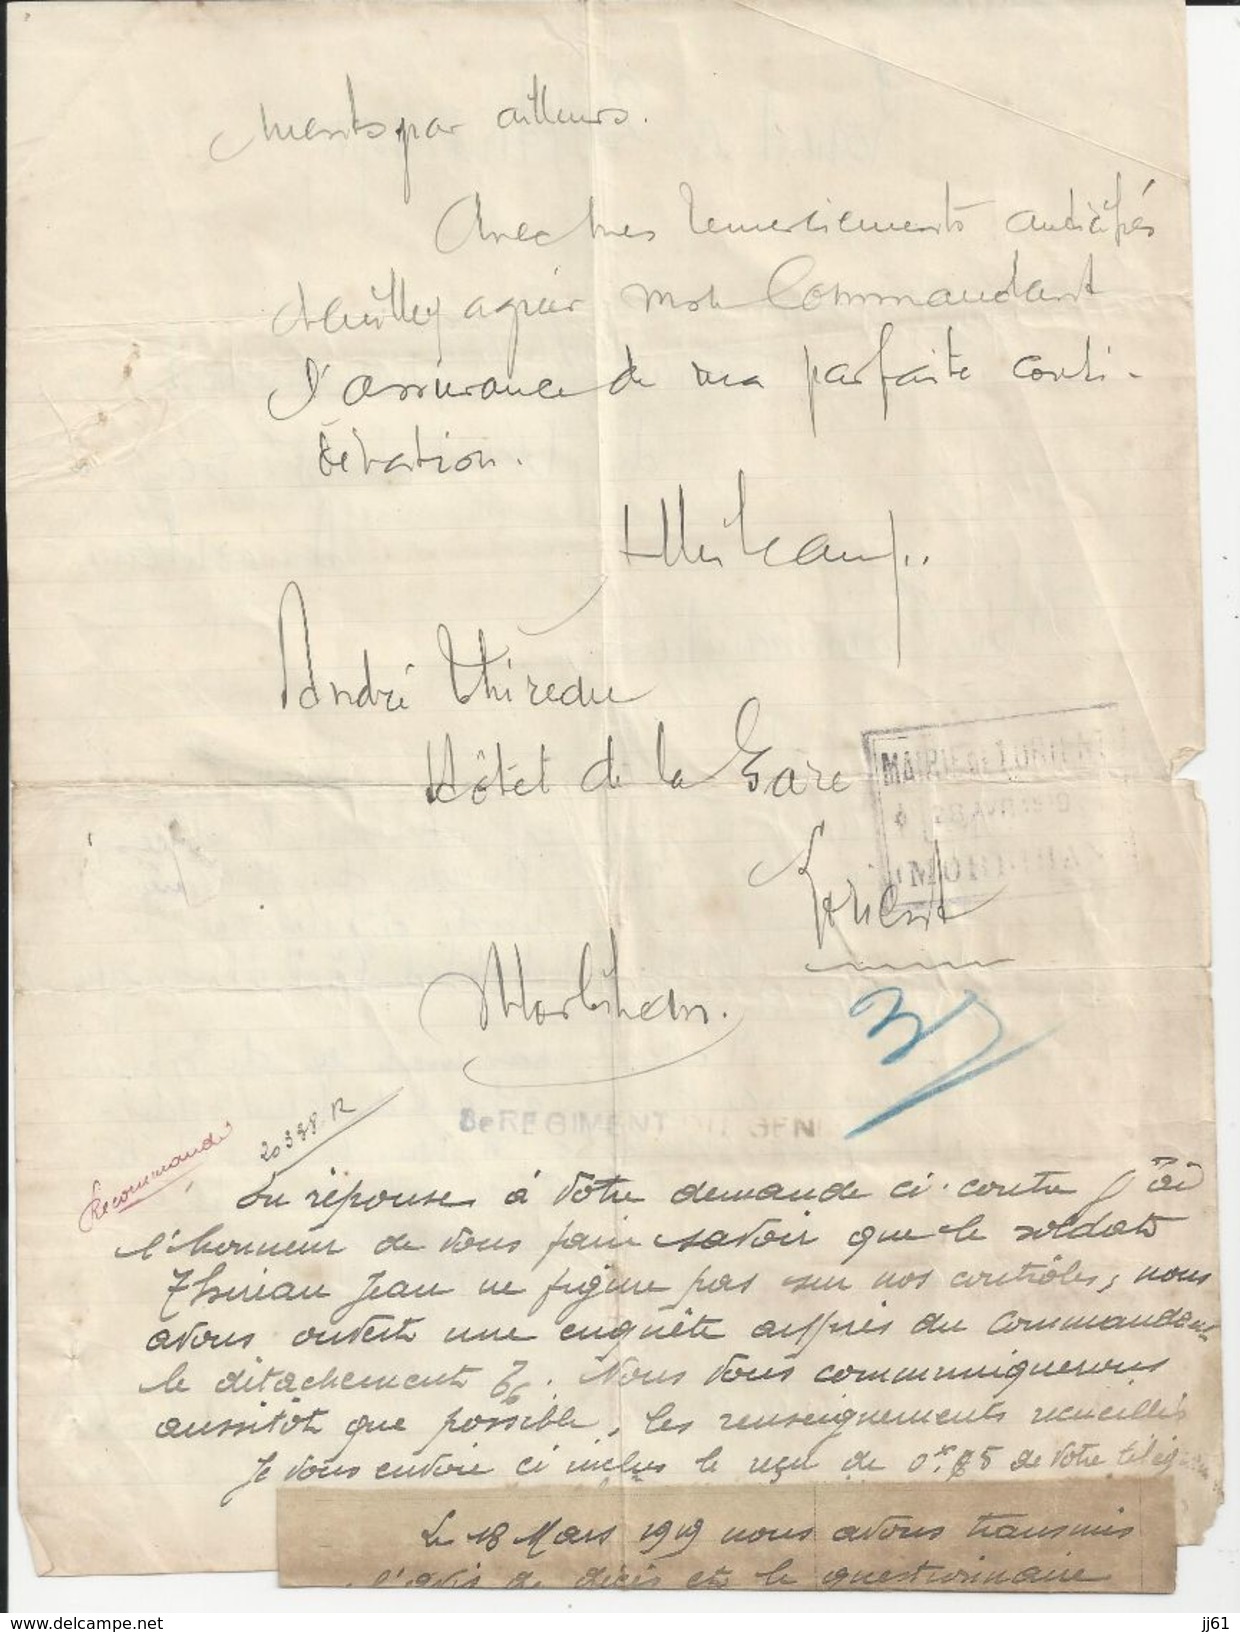 ments par ailleurs.
Avec mes remerciements anticipés
Veuillez agréer mon Commandant
l'assurance de ma parfaite consi-
dération.
André Thireau
Hôtel de la Gare
MAIRIE DE LORIENT
MORBIHAN
Lorient
Morbihan.
8e REGIMENT DU GENI
Recommandé
20388 R
En réponse à votre demande ci-contre j'ai
l'honneur de vous faire savoir que le soldat
Thireau Jean ne figure pas sur nos contrôles, nous
avons ouvert une enquête auprès du Commandant
le détachement. Nous vous communiquerons
aussitôt que possible, les renseignements recueillis
Je vous envoie ci inclus le reçu de de votre
Le 18 Mars 1919 nous avons transmis
l'avis de décès et le questionnaire
delcampe.net
jj61